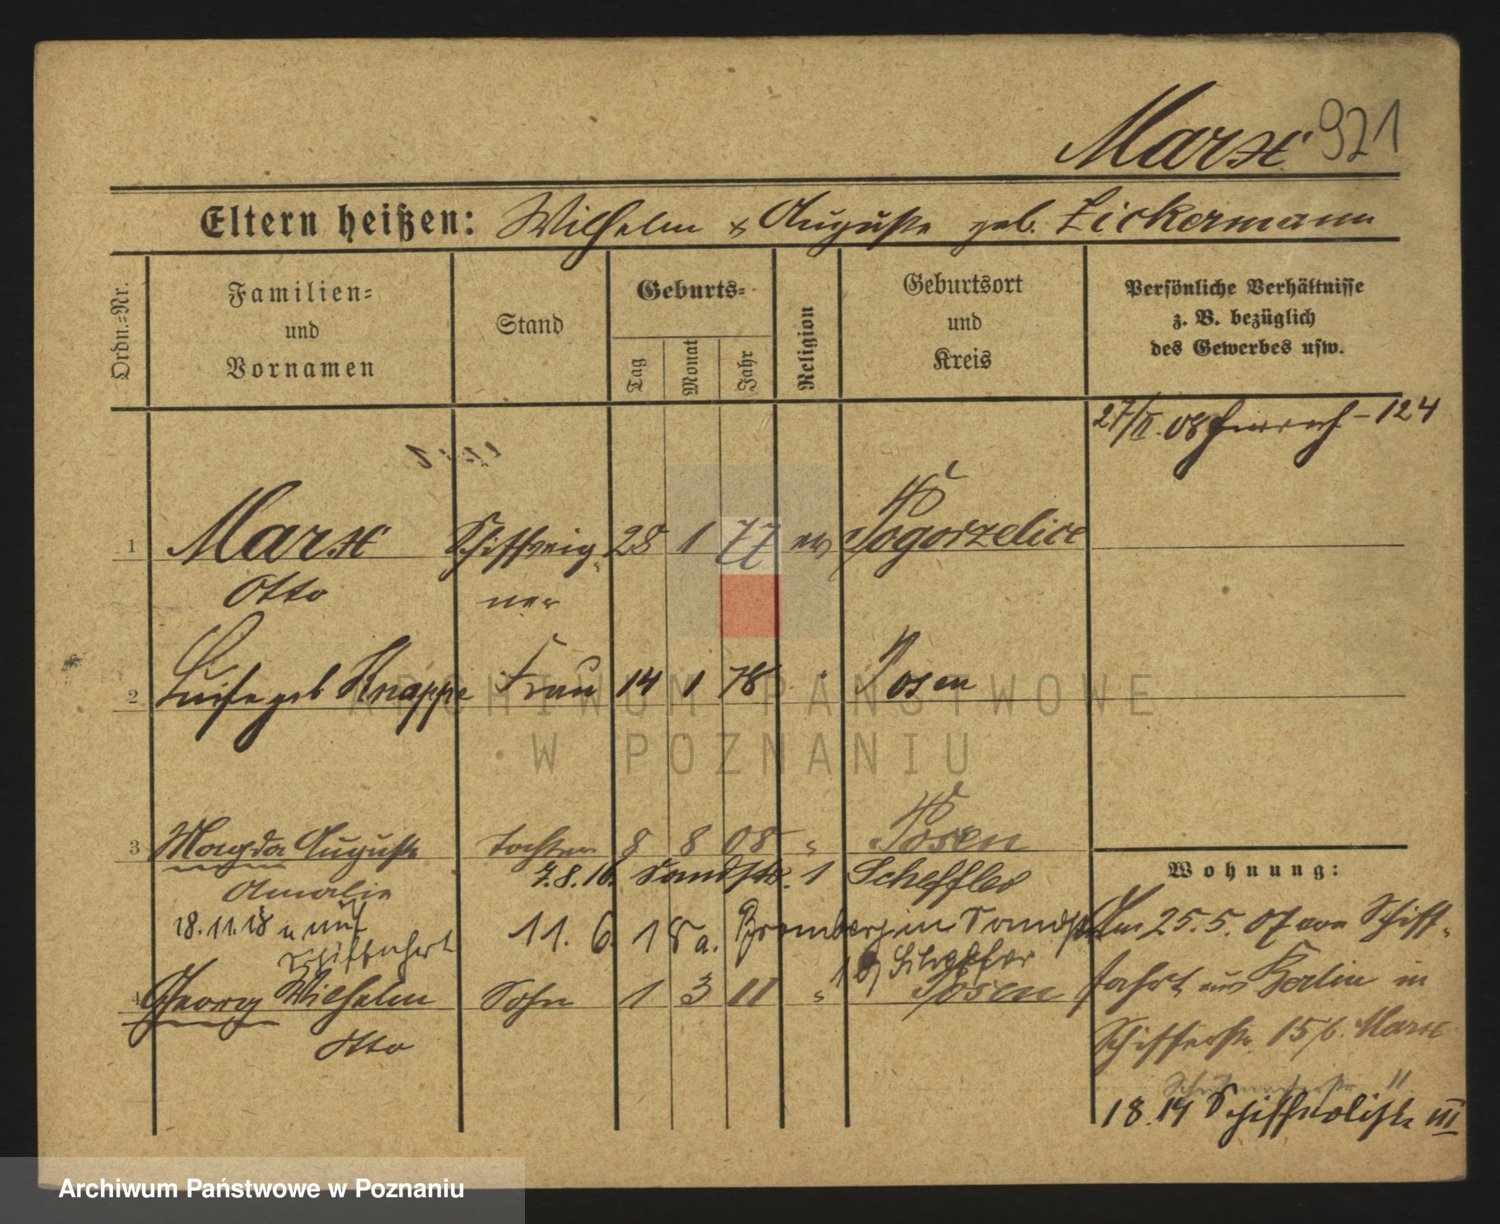 Marx 921
Eltern heißen: Wilhelm & Auguste geb. Zickermann
Ordn.-Nr.
Familien-
und
Vornamen
Stand
Geburts-
Tag
Monat
Jahr
Religion
Geburtsort
und
Kreis
Persönliche Verhältnisse
z. B. bezüglich
des Gewerbes usw.
27/II. 08 - 124
1 Marx Schiffseig- 28 1 77 ev Pogorzelice
Otto ner
2 Luise geb Knappe Frau 14 1 78 " Posen
3 Magda Auguste Tochter 8 8 08 " Posen
Amalie 7.8.16. Sandstr. 1 Scheffler
18.11.18 u auf
Schiffahrt
11. 6. 18 a. Bromberg in Sandstr
4 Georg Wilhelm Sohn 1 3 11 " Posen
Otto
Wohnung:
Am 25.5.07 von Schiff-
fahrt aus Berlin in
Schifferstr. 15 b. Marx
18.14 Schifferliste III
ARCHIWUM PAŃSTWOWE
W POZNANIU
Archiwum Państwowe w Poznaniu